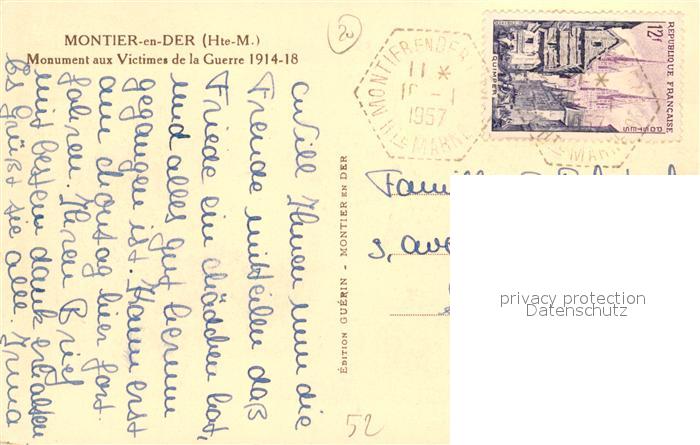 20
MONTIER-en-DER (Hte-M.)
Monument aux Victimes de la Guerre 1914-18
Will Ihnen nun die
Freude mitteilen daß
Friede ein Mädchen hat,
und alles gut herum
gegangen ist. Kann erst
am Montag hier fort
fahren. Ihren Brief
mit bestem dank erhalten
Es Grüßt sie alle. Irma
ÉDITION GUÉRIN - MONTIER EN DER
MONTIER EN DER
11 *
1957
Hte MARNE
REPUBLIQUE FRANÇAISE
12f
POSTES
QUIMPER
3, ave
privacy protection
Datenschutz
52